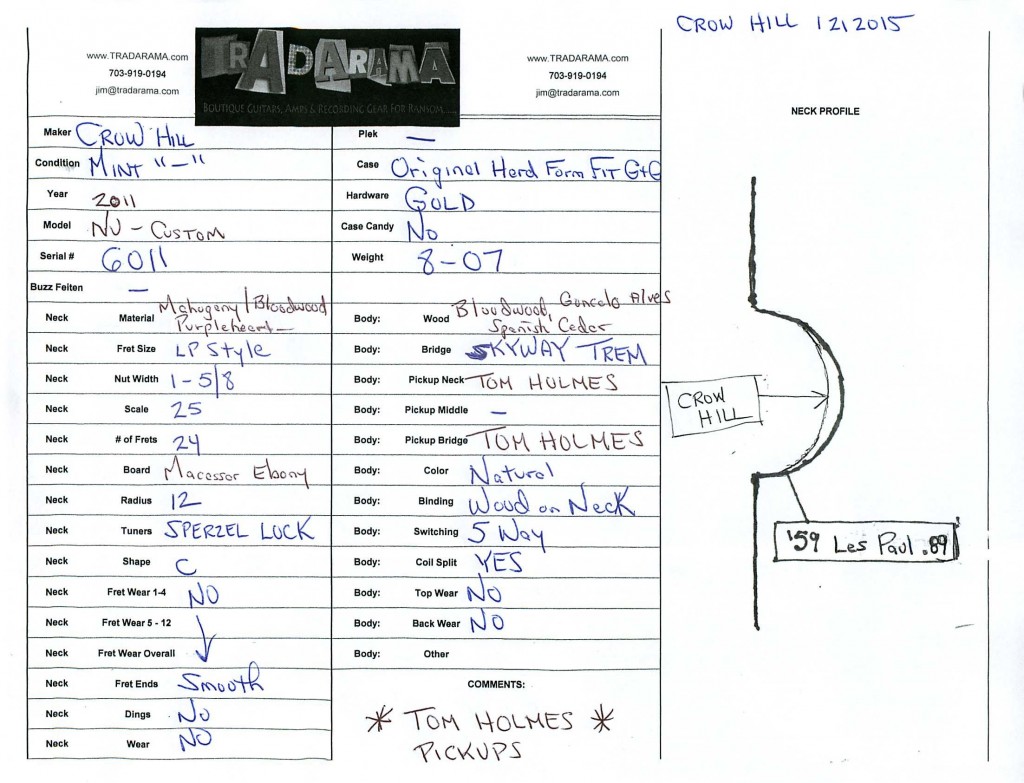 CROW HILL 12/2015
www.TRADARAMA.com
703-919-0194
jim@tradarama.com
TRADARAMA
BOUTIQUE GUITARS, AMPS & RECORDING GEAR FOR RANSOM....
www.TRADARAMA.com
703-919-0194
jim@tradarama.com
Maker CROW HILL
Condition MINT "-"
Year 2011
Model NU - CUSTOM
Serial # 6011
Buzz Feiten —
Neck Material Mahogany/Bloodwood
Purpleheart—
Neck Fret Size LP Style
Neck Nut Width 1-5/8
Neck Scale 25
Neck # of Frets 24
Neck Board Macassar Ebony
Neck Radius 12
Neck Tuners SPERZEL LOCK
Neck Shape C
Neck Fret Wear 1-4 NO
Neck Fret Wear 5 - 12
Neck Fret Wear Overall
Neck Fret Ends Smooth
Neck Dings No
Neck Wear NO
Plek —
Case Original Hard Form FIT G+G
Hardware GOLD
Case Candy No
Weight 8-07
Body: Wood Bloodwood, Goncalo Alves
Spanish Cedar
Body: Bridge SKYWAY TREM
Body: Pickup Neck TOM HOLMES
Body: Pickup Middle —
Body: Pickup Bridge TOM HOLMES
Body: Color Natural
Body: Binding Wood on Neck
Body: Switching 5 Way
Body: Coil Split YES
Body: Top Wear No
Body: Back Wear No
Body: Other
COMMENTS:
* TOM HOLMES *
PICKUPS
NECK PROFILE
CROW
HILL
'59 Les Paul .89